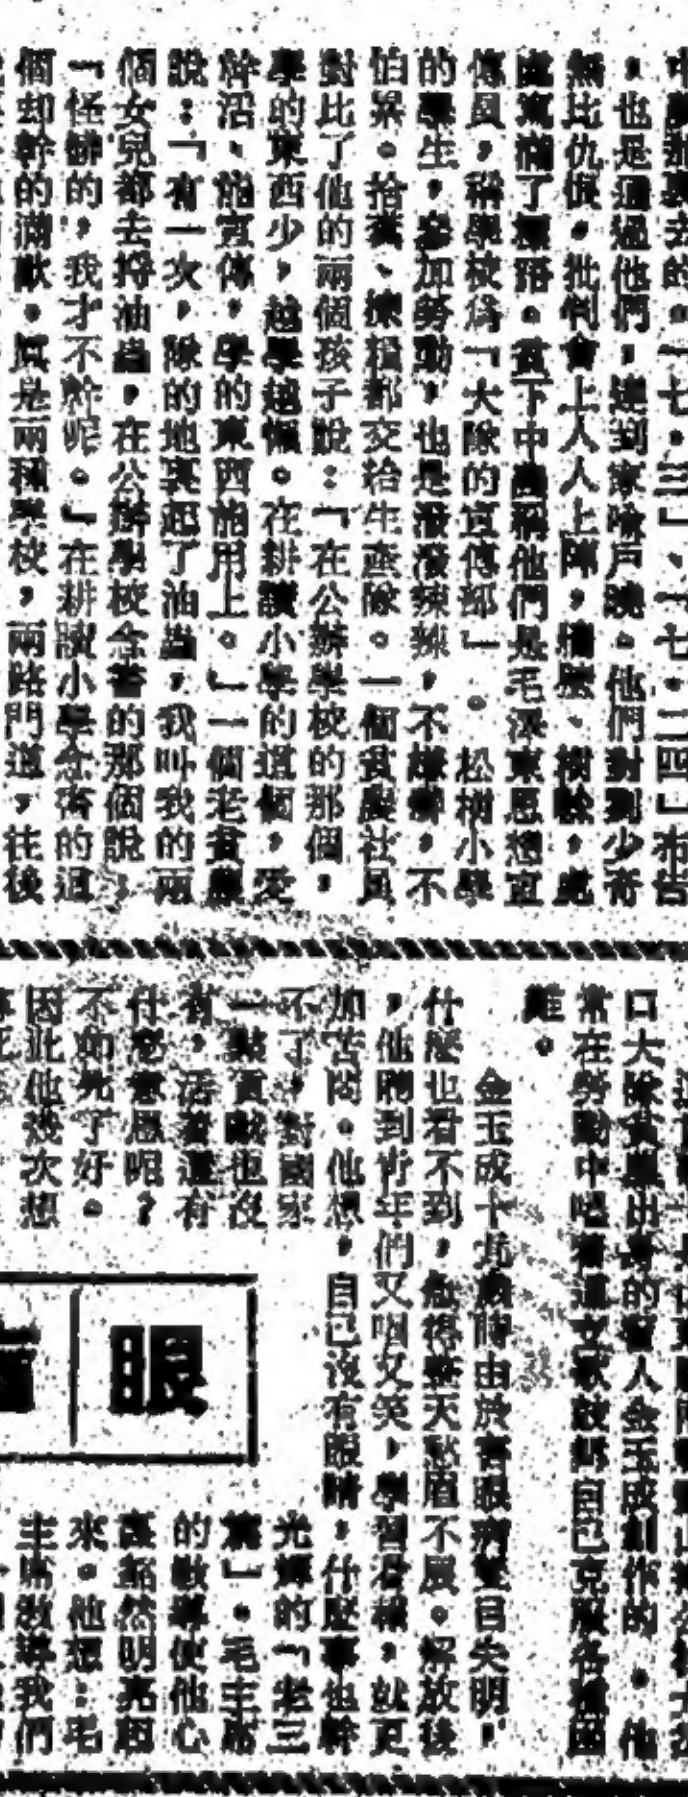 去的。「七・三」、「七・二四」布告
，也是通過他們，達到家喻戶曉。他們對劉少奇
無比仇恨，批判會上人人上陣，牆壁、樹幹，處
處寫滿了標語。貧下中農稱他們是毛澤東思想宣
傳員，稱學校爲「大隊的宣傳部」。松樹小學
的學生，參加勞動，也是潑潑辣辣，不嫌髒，不
怕累。拾糞、揀糧都交給生產隊。一個貧農社員
對比了他的兩個孩子說：「在公辦學校的那個，
學的東西少，越學越懶。在耕讀小學的這個，愛
幹活、能宣傳，學的東西能用上。」一個老貧農
說：「有一次，隊的地裏起了油蟲，我叫我的兩
個女兒都去捋油蟲，在公辦學校念書的那個說，
『怪髒的，我才不幹呢。』在耕讀小學念書的這
個却幹的滿歡。眞是兩種學校，兩路門道，往後
口大隊貧農出身的盲人金玉成創作的。他
常在勞動中唱着這支歌鼓舞自己克服各種困
難。
金玉成十九歲時由於害眼病雙目失明，
什麼也看不到，愁得整天愁眉不展。解放後
，他聽到青年們又唱又笑，學習看報，就更
加苦悶。他想，自己沒有眼睛，什麼事也幹
不了，對國家
一點貢獻也沒
有，活着還有
什麼意思呢？
不如死了好。
因此他幾次想
眼
光輝的「老三
篇」。毛主席
的教導使他心
裏豁然明亮起
來。他想：毛
主席教導我們